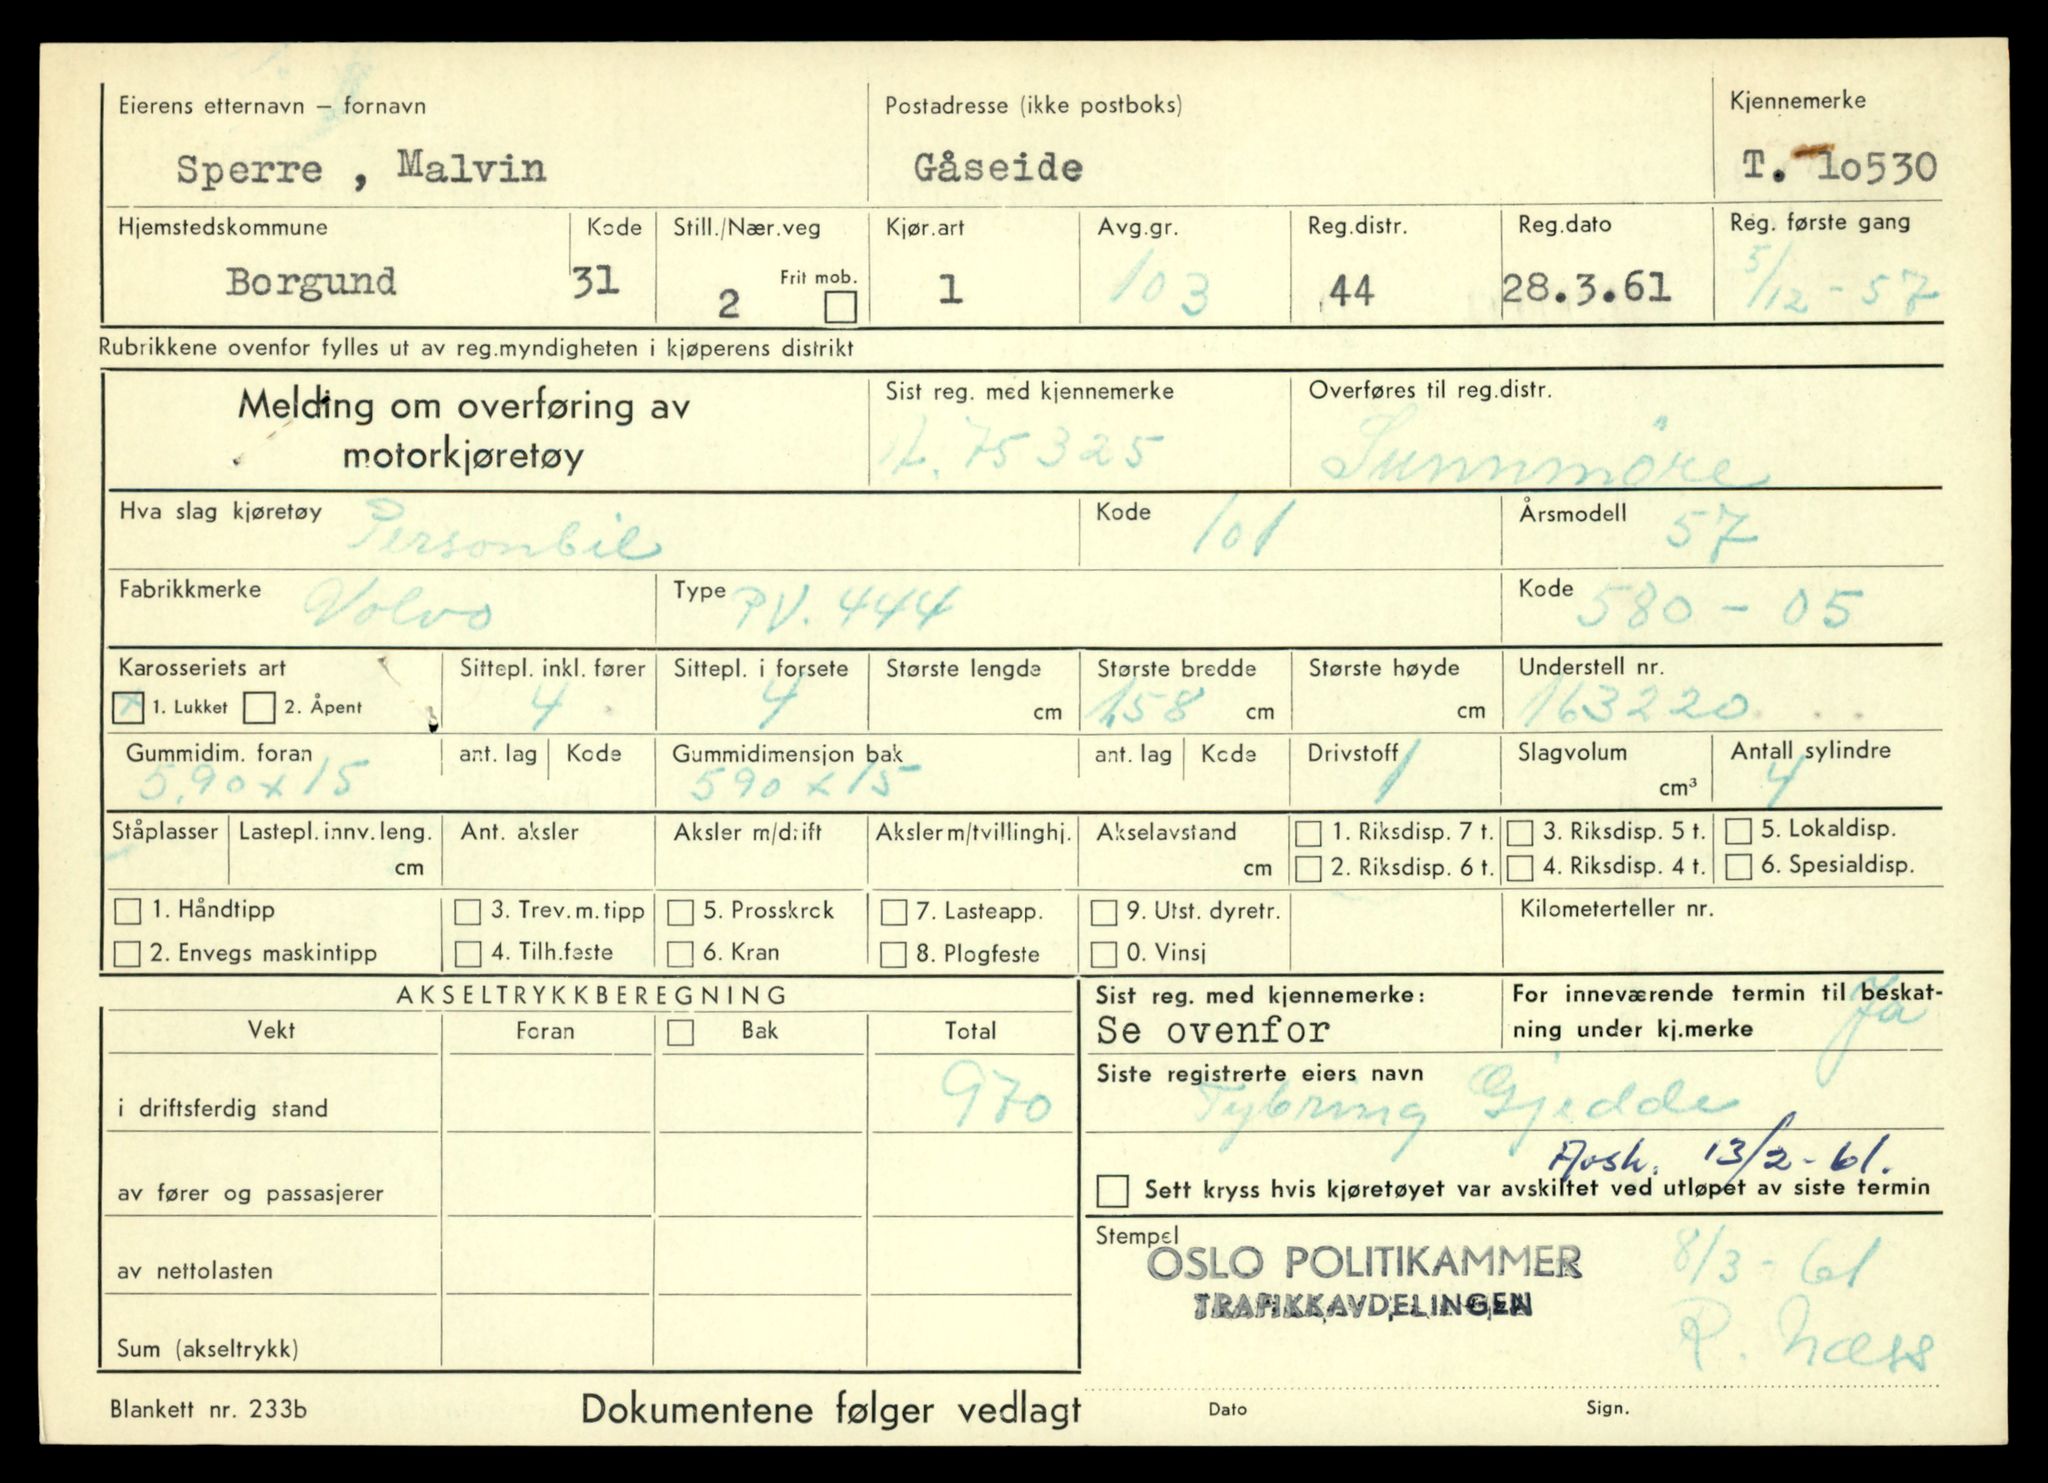 Eierens etternavn – fornavn
Postadresse (ikke postboks)
Kjennemerke
Sperre , Malvin
Gåseide
T. 10530
Hjemstedskommune
Kode
Still./Nær.veg
Kjør.art
Avg.gr.
Reg.distr.
Reg.dato
Reg. første gang
Borgund
31
2
Frit mob.
1
103
44
28.3.61
5/12 - 57
Rubrikkene ovenfor fylles ut av reg.myndigheten i kjøperens distrikt
Melding om overføring av
motorkjøretøy
Sist reg. med kjennemerke
75325
Overføres til reg.distr.
Sunnmöre
Hva slag kjøretøy
Personbil
Kode
101
Årsmodell
57
Fabrikkmerke
Volvo
Type
PV. 444
Kode
580 - 05
Karosseriets art
Sittepl. inkl. fører
Sittepl. i forsete
Største lengde
Største bredde
Største høyde
Understell nr.
x 1. Lukket
2. Åpent
4
4
cm
158 cm
cm
163220
Gummidim. foran
ant. lag
Kode
Gummidimensjon bak
ant. lag
Kode
Drivstoff
Slagvolum
Antall sylindre
5.90 x 15
590 x 15
1
cm³
4
Ståplasser
Lastepl. innv. leng.
Ant. aksler
Aksler m/drift
Aksler m/tvillinghj.
Akselavstand
1. Riksdisp. 7 t.
3. Riksdisp. 5 t.
5. Lokaldisp.
cm
cm
2. Riksdisp. 6 t.
4. Riksdisp. 4 t.
6. Spesialdisp.
1. Håndtipp
3. Trev. m. tipp
5. Prosskrok
7. Lasteapp.
9. Utst. dyretr.
Kilometerteller nr.
2. Envegs maskintipp
4. Tilh.feste
6. Kran
8. Plogfeste
0. Vinsj
AKSELTRYKKBEREGNING
Vekt
Foran
Bak
Total
i driftsferdig stand
970
av fører og passasjerer
av nettolasten
Sum (akseltrykk)
Sist reg. med kjennemerke:
Se ovenfor
For inneværende termin til beskat-
ning under kj.merke
Ja
Siste registrerte eiers navn
Tybring Gjedde
Avsk. 13/2 - 61.
Sett kryss hvis kjøretøyet var avskiltet ved utløpet av siste termin
Stempel
OSLO POLITIKAMMER
TRAFIKKAVDELINGEN
8/3 - 61
R. Næss
Blankett nr. 233b
Dokumentene følger vedlagt
Dato
Sign.